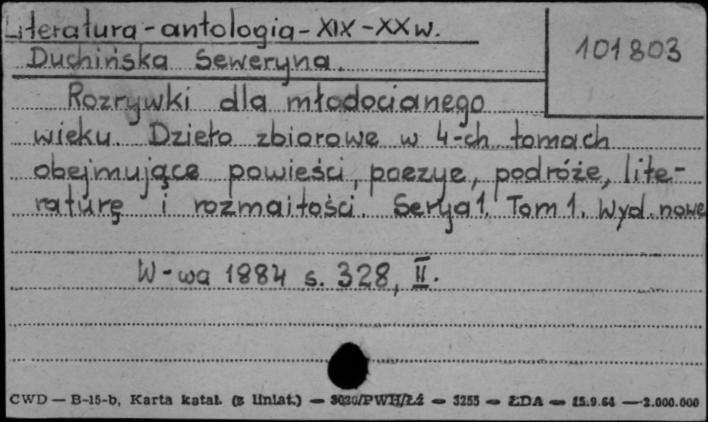 Literatura - antologia - XIX - XX w.
101803
Duchińska Seweryna.
Rozrywki dla młodocianego
wieku. Dzieło zbiorowe w 4-ch tomach
obejmujące powieści, poezye, podróże, lite-
raturę i rozmaitości. Serya 1. Tom 1. Wyd. nowe
W-wa 1884 s. 328, II.
CWD — B-15-b, Karta katal. (z liniat.) — 3030/PWH/Łź — 3255 — ŁDA — 15.9.64 — 2.000.000